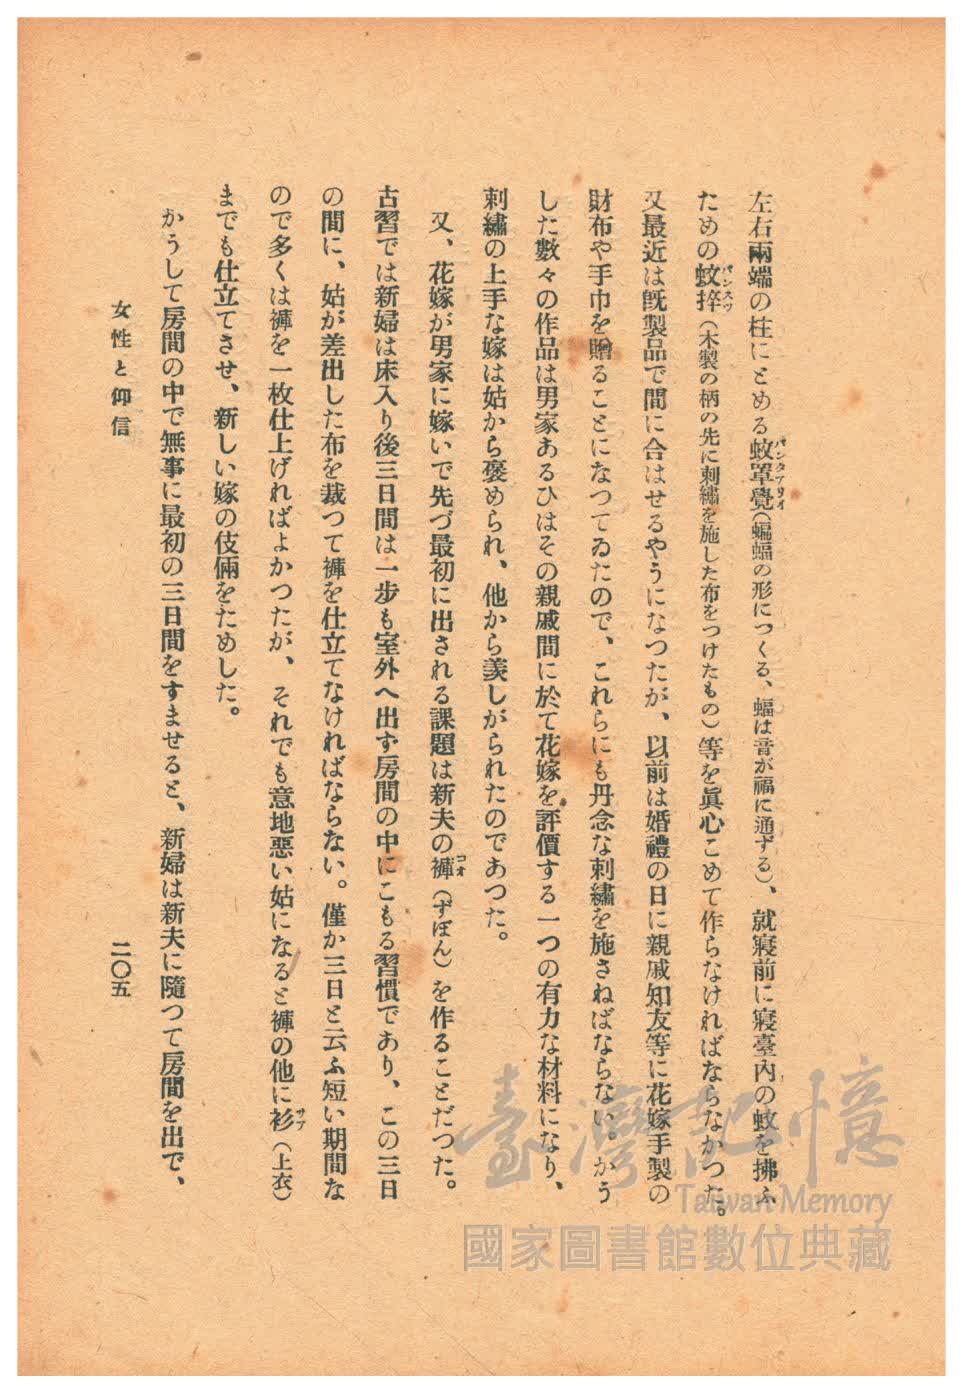 左右兩端の柱にとめる蚊罩覺(蝙蝠の形につくる、蝠は音が福に通ずる)、就寢前に寢臺內の蚊を拂ふ
ための蚊捽(木製の柄の先に刺繡を施した布をつけたもの)等を眞心こめて作らなければならなかつた。
又最近は旣製品で間に合はせるやうになつたが、以前は婚禮の日に親戚知友等に花嫁手製の
財布や手巾を贈ることになつてゐたので、これらにも丹念な刺繡を施さねばならない。かう
した數々の作品は男家あるひはその親戚間に於て花嫁を評價する一つの有力な材料になり、
刺繡の上手な嫁は姑から褒められ、他から羨しがられたのであつた。
又、花嫁が男家に嫁いで先づ最初に出される課題は新夫の褲(ずぼん)を作ることだつた。
古習では新婦は床入り後三日間は一步も室外へ出ず房間の中にこもる習慣であり、この三日
の間に、姑が差出した布を裁つて褲を仕立てなければならない。僅か三日と云ふ短い期間な
ので多くは褲を一枚仕上げればよかつたが、それでも意地惡い姑になると褲の他に衫(上衣)
までも仕立てさせ、新しい嫁の伎倆をためした。
かうして房間の中で無事に最初の三日間をすませると、新婦は新夫に隨つて房間を出で、
女性と仰信
二〇五
臺灣記憶
Taiwan Memory
國家圖書館數位典藏